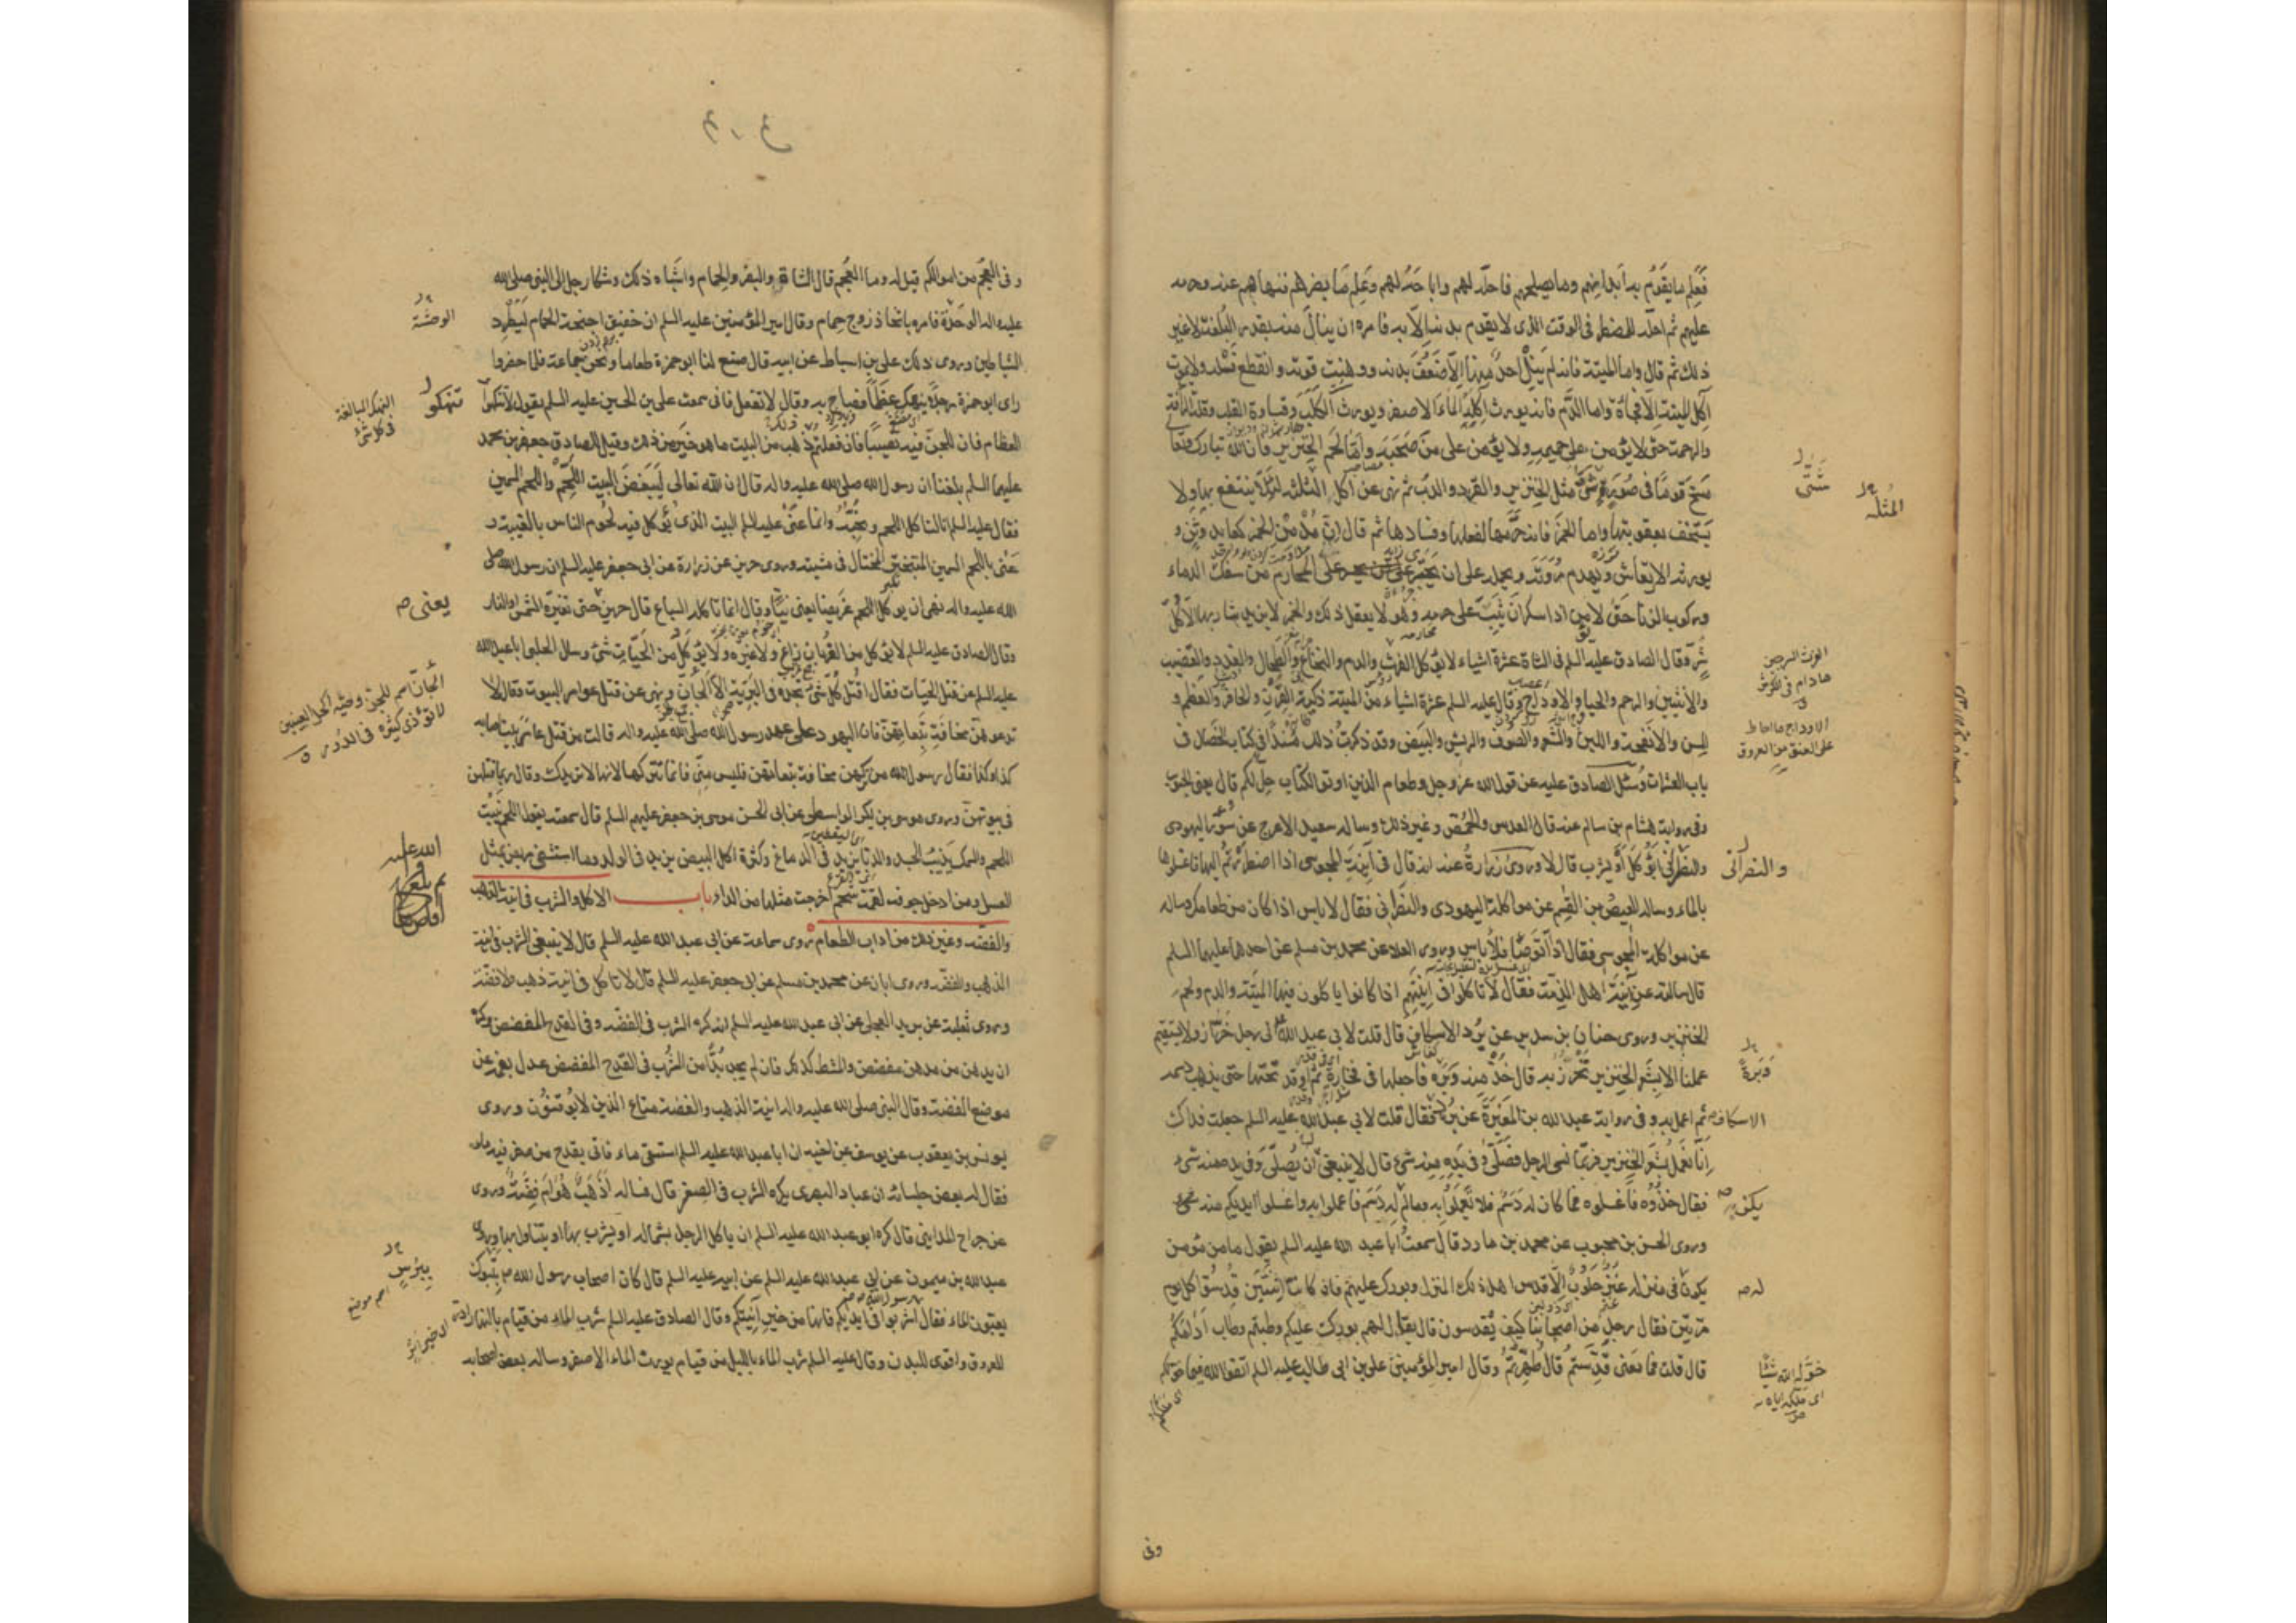 فَعَلِم ما يَقُومُ به أبدانهم وما يصلحهم فاحلّه لهم واباحَه لهم وعَلِم ما يضرهم فنهاهم عنه وحرمه
عليهم ثم احلّه للمضطر فى الوقت الذى لا يقوم بدنه الّا به فامره ان ينال منه بقدر البُلغة لا غير
ذلك ثم قال واما الميتة فانه لم يَنَلْ احدٌ منها الّا ضَعُفَ بدنه ووهنت قوته وانقطع نسله ولا يموت
آكل الميتة الّا فجأة واما الدّم فانه يورث اكله الماء الاصفر ويورث الكَلَب وقساوة القلب وقلة الرأفة
والرحمة حتى لا يؤمن على حميمه ولا يؤمن على من صَحِبَه واما لحم الخنزير فان الله تبارك وتعالى
مسخ قوما فى صُوَرٍ شتّى مثل الخنزير والقرد والدبّ ثم نهى عن اكل المثلة لئلّا ينتفع بها ولا
يستخف بعقوبتها واما الخمر فانه حرّمها لفعلها وفسادها ثم قال انّ مُدْمن الخمر كعابد وثن و
يورثه الارتعاش ويهدم مروّته ويحمله على ان يجسر على المحارم من سفك الدماء
وركوب الزنا حتى لا يؤمن اذا سكر ان يثب على حرمه وهو لا يعقل ذلك والخمر لا يزيد شاربها الّا كلّ
شرّ وقال الصادق عليه السلم فى الشاة عشرة اشياء لا يؤكل الفرث والدم والنخاع والطحال والغدد والقضيب
والانثيين والرحم والحياء والاوداج وقال عليه السلم عشرة اشياء من الميتة ذكية القرن والحافر والعظم و
السن والانفحة واللبن والشعر والصوف والريش والبيض وقد ذكرت ذلك مسندا فى كتاب الخصال فى
باب العشرات وسئل الصادق عليه عن قول الله عز وجل وطعام الذين اوتوا الكتاب حل لكم قال يعنى الحبوب
وفى رواية هشام بن سالم عنه قال العدس والحمّص وغير ذلك وساله سعيد الاعرج عن سؤر اليهودى
والنصرانى أيؤكل أو يشرب قال لا وروى زرارة عنه انه قال فى آنية المجوسى اذا اضطررتم اليها فاغسلوها
بالماء وساله العيص بن القسم عن مواكلة اليهودى والنصرانى فقال لا باس اذا كان من طعامك وساله
عن مواكلة المجوسى فقال اذا توضّأ فلا باس وروى العلا عن محمد بن مسلم عن احدهما عليهما السلم
قال سالته عن آنية اهل الذمّة فقال لا تاكلوا فى آنيتهم اذا كانوا ياكلون فيها الميتة والدم ولحم
الخنزير وروى حنان بن سدير عن بُرد الاسكاف قال قلت لابى عبد الله انى رجل خرّاز ولا يستقيم
عملنا الا بشعر الخنزير نخرز به قال خذ منه وبره فاجعلها فى فخارة ثم اوقد تحتها حتى يذهب دسمه
ثم اعمل به وفى رواية عبد الله بن المغيرة عن برد فقال قلت لابى عبد الله عليه السلم جعلت فداك
انّا نعمل بشعر الخنزير فربّما نسى الرجل فصلّى وفى يده منه شئ قال لا ينبغى ان يصلّى وفى يده منه شئ
فقال خذوه فاغسلوه فما كان له دسم فلا تعملوا به وما لم يكن له دسم فاعملوا به واغسلوا ايديكم منه
وروى الحسن بن محبوب عن محمد بن مارد قال سمعت ابا عبد الله عليه السلم يقول ما من مؤمن
يكون فى منزله عنز حلوب الّا قدس اهل ذلك المنزل وبورك عليهم فان كانتا اثنتين قدسوا كل يوم
مرتين فقال رجل من اصحابنا كيف يقدسون قال يقال لهم بوركت عليكم وطبتم وطاب ادامكم
قال قلت فما معنى قدّستم قال طهّرتم وقال امير المؤمنين على بن ابى طالب عليه السلم اتقوا الله فيما خوّلكم
شَتّى
المُثلة
الفرث السرجين
مادام فى الكرش
الاوداج ما احاط
على العنق من العروق
والنصرانى
وَبَرَةً
الاسكاف
يكن
له
خوّله الله شيئا
اى ملّكه اياه
وفى
وفى العُجم من اموالكم قيل له وما العُجم قال الشاة والبقر والحمام واشباه ذلك وشكا رجل الى النبى صلى الله
عليه واله الوحدة فامره باتخاذ زوج حمام وقال امير المؤمنين عليه السلم ان خفيق اجنحة الحمام ليطرد
الشياطين وروى ذلك على بن اسباط عن ابيه قال صنع لنا ابو حمزة طعاما ونحن جماعة فلما حضروا
راى ابو حمزة رجلا ينهك عظما فصاح به وقال لا تفعل فانى سمعت على بن الحسين عليه السلم يقول لا تنهكوا
العظام فان للجن فيه نصيبا فان فعلتم ذهب من البيت ما هو خير من ذلك وقيل للصادق جعفر بن محمد
عليهما السلم بلغنا ان رسول الله صلى الله عليه واله قال ان الله تعالى ليبغض البيت اللحم واللحم السمين
فقال عليه السلم انا لناكل اللحم ونحبّه وانما عنى عليه السلم البيت الذى يؤكل فيه لحوم الناس بالغيبة و
عنى باللحم السمين المتبختر المختال فى مشيته وروى حريز عن زرارة عن ابى جعفر عليه السلم ان رسول الله صلى
الله عليه واله نهى ان يوكل اللحم غريضا يعنى نيّا وقال انما تاكله السباع قال حريز حتى تغيّره الشمس او النار
وقال الصادق عليه السلم لا يؤكل من الغربان زاغ ولا غيره ولا يؤكل من الحيّات شئ وسال الحلبى ابا عبد الله
عليه السلم عن قتل الحيّات فقال اقتل كلّ شئ تجده فى البرّية الّا الجانّ ونهى عن قتل عوامر البيوت وقال لا
تدعوهن مخافة تبعاتهن فان اليهود على عهد رسول الله صلى الله عليه واله قالت من قتل عامر بيت اصابه
كذا وكذا فقال رسول الله من تركهن مخافة تبعاتهن فليس منى فانما تتركها لانها لا تريدك وقال ربما قتلهن
فى بيوتهن وروى موسى بن بكر الواسطى عن ابى الحسن موسى بن جعفر عليهم السلم قال سمعته يقول اللحم ينبت
اللحم والسمك يذيب الجسد والدبّا يزيد فى الدماغ وكثرة اكل البيض يزيد فى الولد وما استشفى مريض بمثل
العسل ومن ادخل جوفه لقمة شحم اخرجت مثلها من الداء باب الاكل والشرب فى آنية الذهب
والفضّة وغير ذلك من اداب الطعام روى سماعة عن ابى عبد الله عليه السلم قال لا ينبغى الشرب فى آنية
الذهب والفضّة وروى ابان عن محمد بن مسلم عن ابى جعفر عليه السلم قال لا تاكل فى آنية ذهب ولا فضّة
وروى ثعلبة عن بريد العجلى عن ابى عبد الله عليه السلم انه كره الشرب فى الفضّة وفى القدح المفضض وكره
ان يدهن من مدهن مفضض والمشط كذلك فان لم يجد بدّا من الشرب فى القدح المفضض عدل بفمه عن
موضع الفضة وقال النبى صلى الله عليه واله آنية الذهب والفضة متاع الذين لا يوقنون وروى
يونس بن يعقوب عن يوسف عن اخيه ان ابا عبد الله عليه السلم استسقى ماء فاتى بقدح من صفر فيه ماء
فقال له بعض جلسائه ان عباد البصرى يكره الشرب فى الصفر قال فساله أذهب هو ام فضّة وروى
عن جراح المدائنى قال كره ابو عبد الله عليه السلم ان ياكل الرجل بشماله او يشرب بها او يتناول بها وروى
عبد الله بن ميمون عن ابى عبد الله عليه السلم عن ابيه عليه السلم قال كان اصحاب رسول الله بتبوك
يعبّون الماء فقال اشربوا فى ايديكم فانها من خير آنيتكم وقال الصادق عليه السلم شرب الماء من قيام بالنهار ادرّ
للعروق واقوى للبدن وقال عليه السلم شرب الماء بالليل من قيام يورث الماء الاصفر وساله بعض اصحابه
الوحشة
تنهكوا
النهك المبالغة
فى كل شئ
يعنى
الجانّ اسم للجنّ وحيّة اكحل العينين
لا تؤذى كثيرة فى الدور
اسم موضع